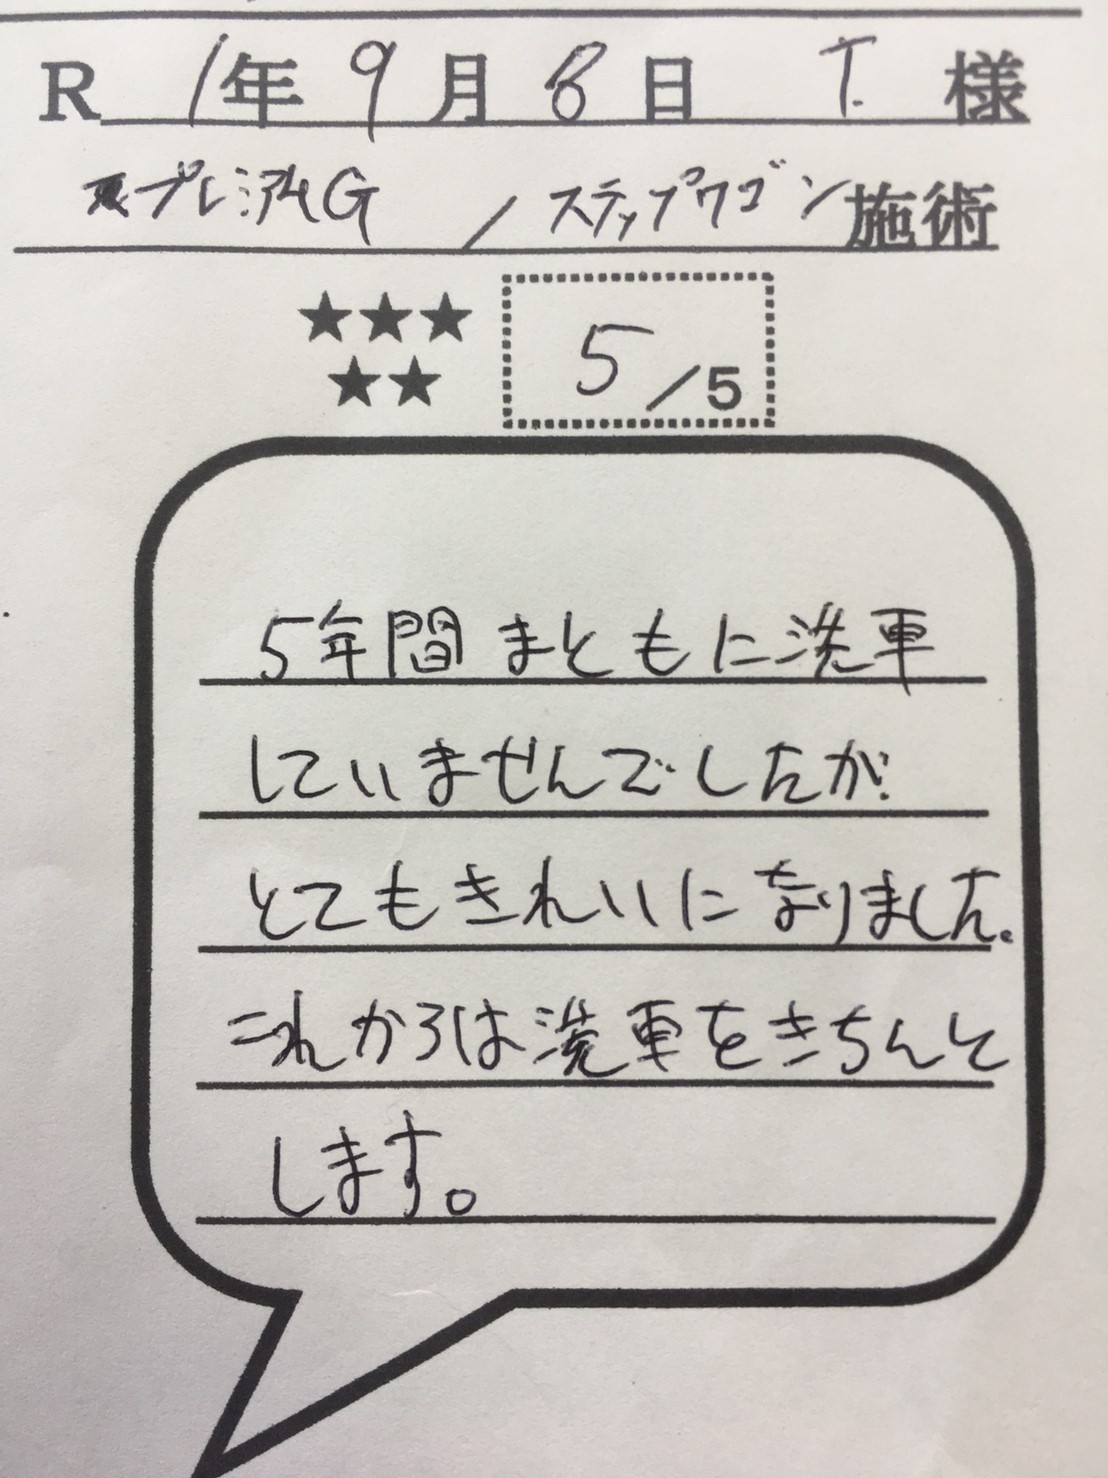 R 1年 9月 8日 T. 様
プレミアムG / ステップワゴン 施術
★★★
★★
5/5
5年間まともに洗車
していませんでしたが
とてもきれいになりました。
これからは洗車をきちんと
します。